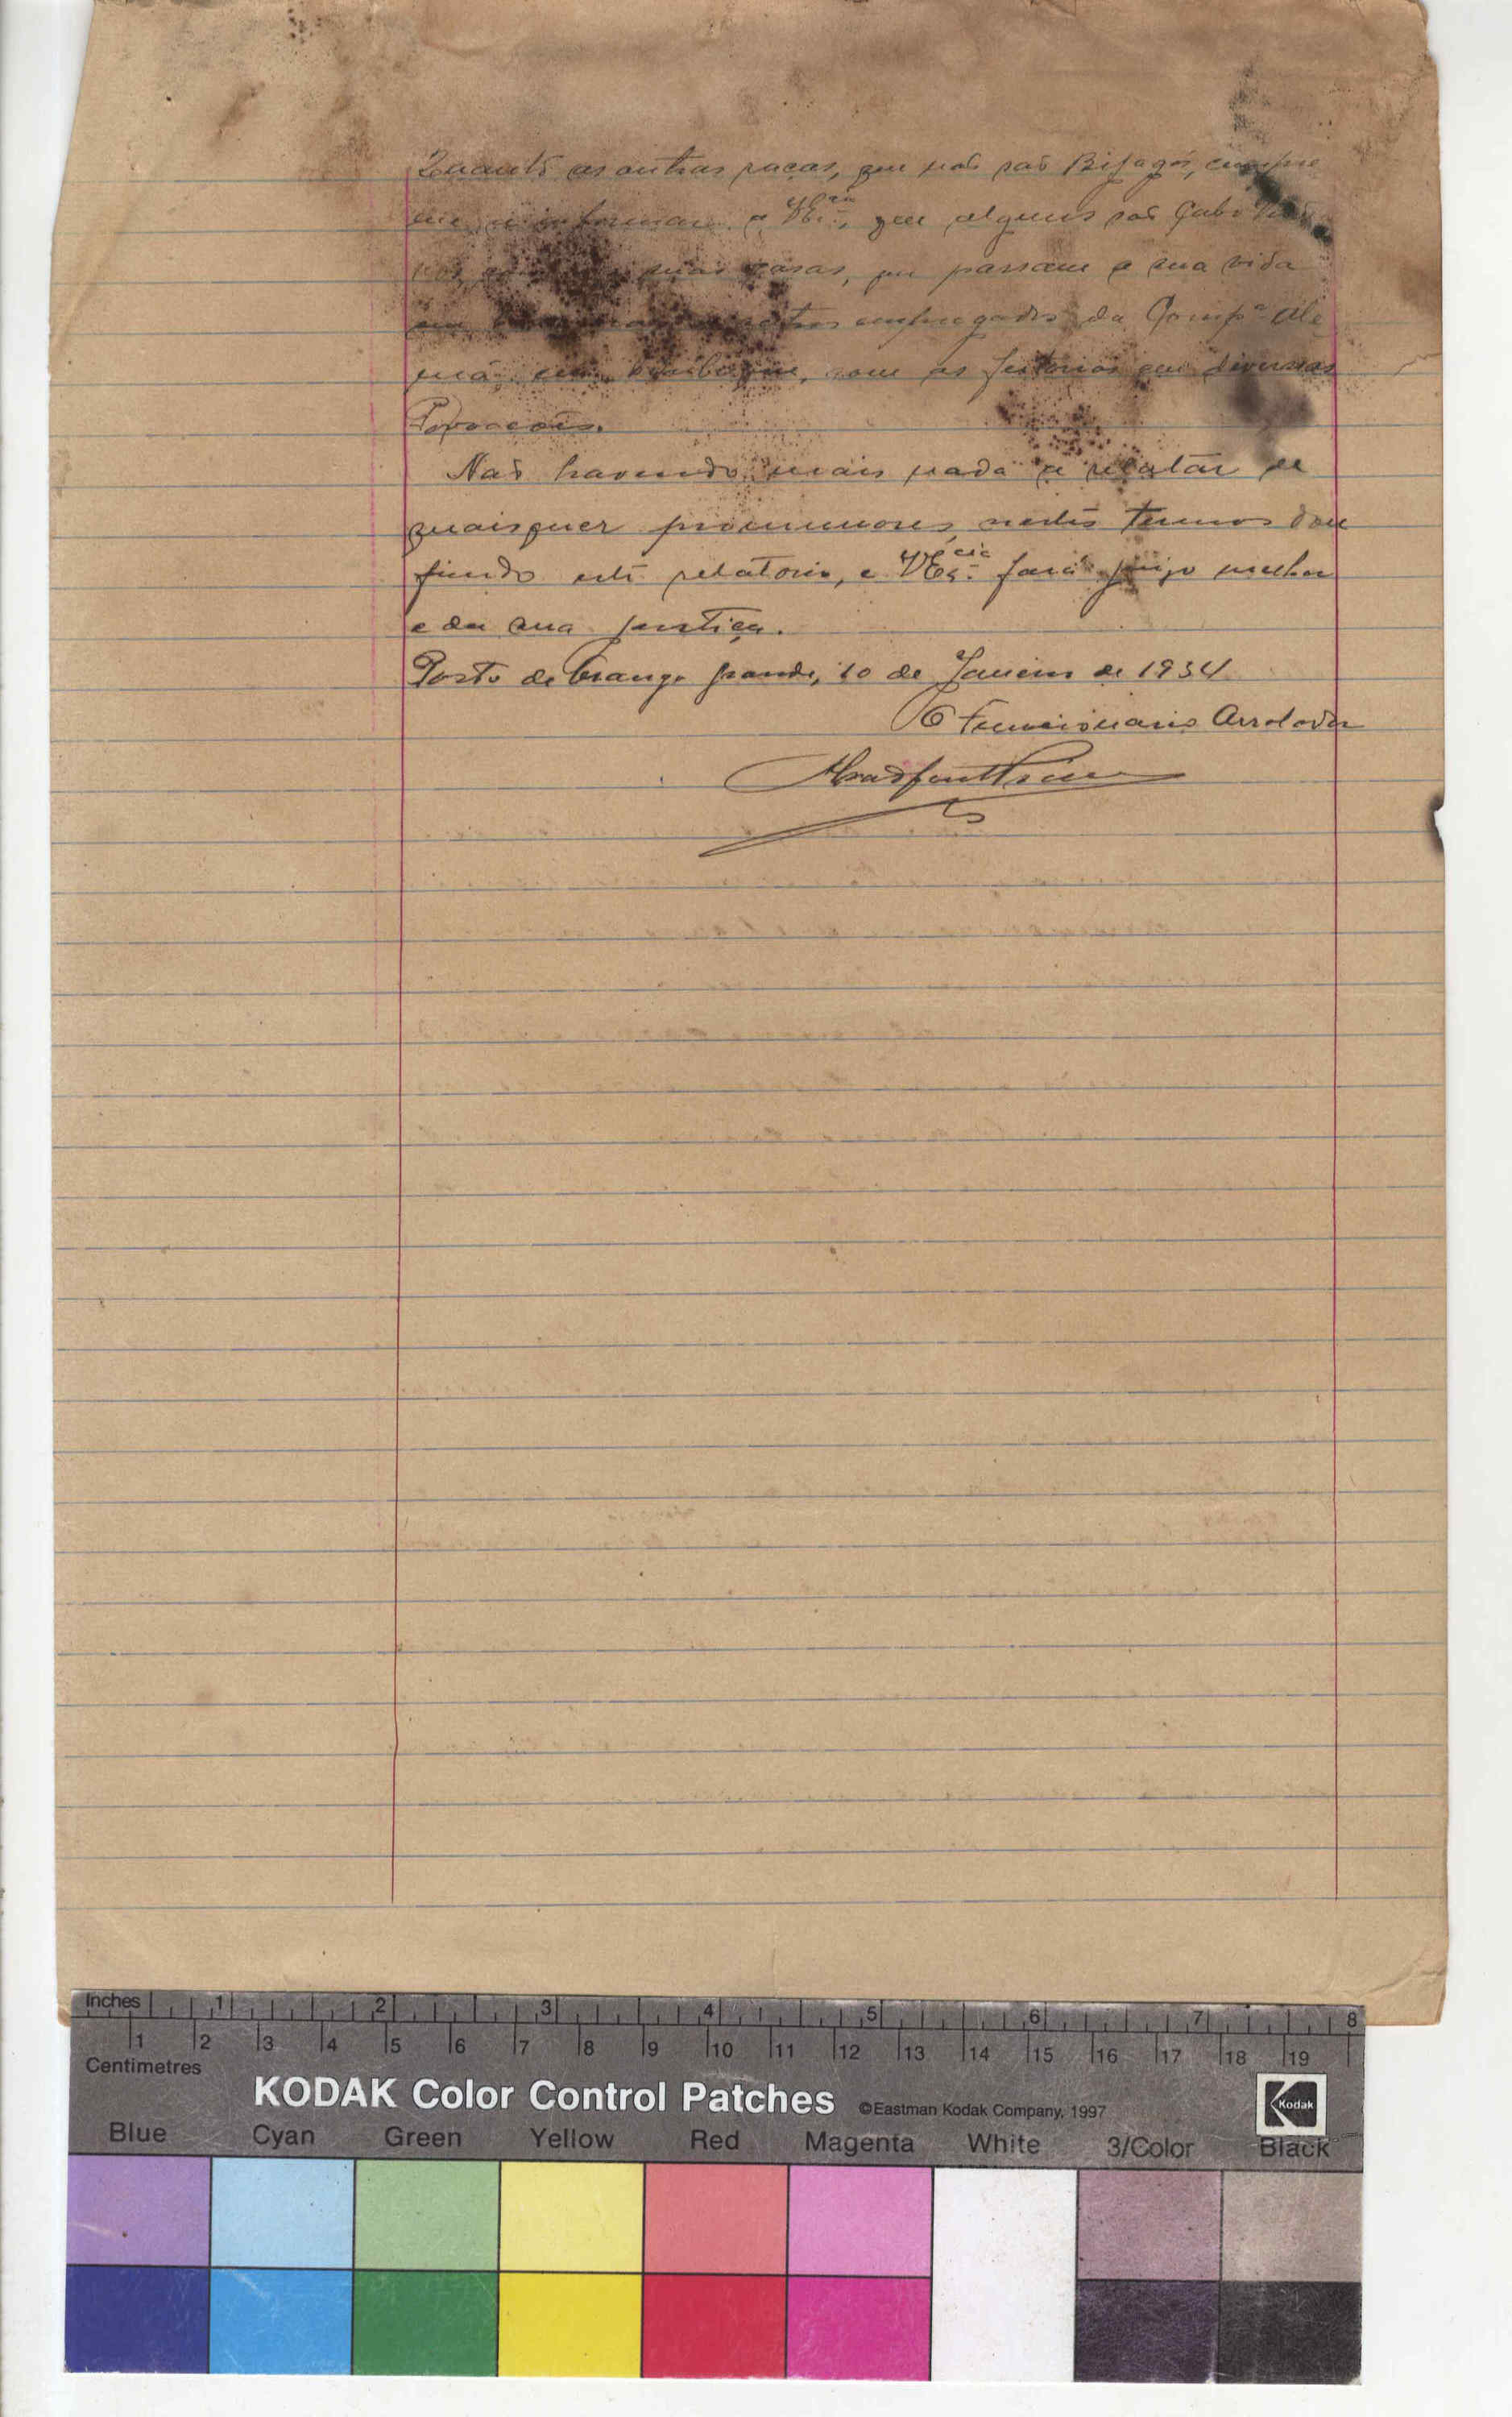 Quanto as outras raças, que não são Bijagós, cumpre
me informar a VEx.cia, que alguns são Cabo
suas casas, que passam a sua vida
empregados da Comp.a Ale
mã, em, com as feitorias em diversas
Povoacões.
Não havendo mais nada a relatar de
quaisquer promenores, nestes termos dou
findo este relatorio, e VEx.cia fará juizo melhor
e da sua justiça.
Posto de Orango grande, 10 de Janeiro de 1934
O Funcionario Arrolador
Inches 1 2 3 4 5 6 7 8
1 2 3 4 5 6 7 8 9 10 11 12 13 14 15 16 17 18 19
Centimetres
KODAK Color Control Patches ©Eastman Kodak Company, 1997 Kodak
Blue Cyan Green Yellow Red Magenta White 3/Color Black